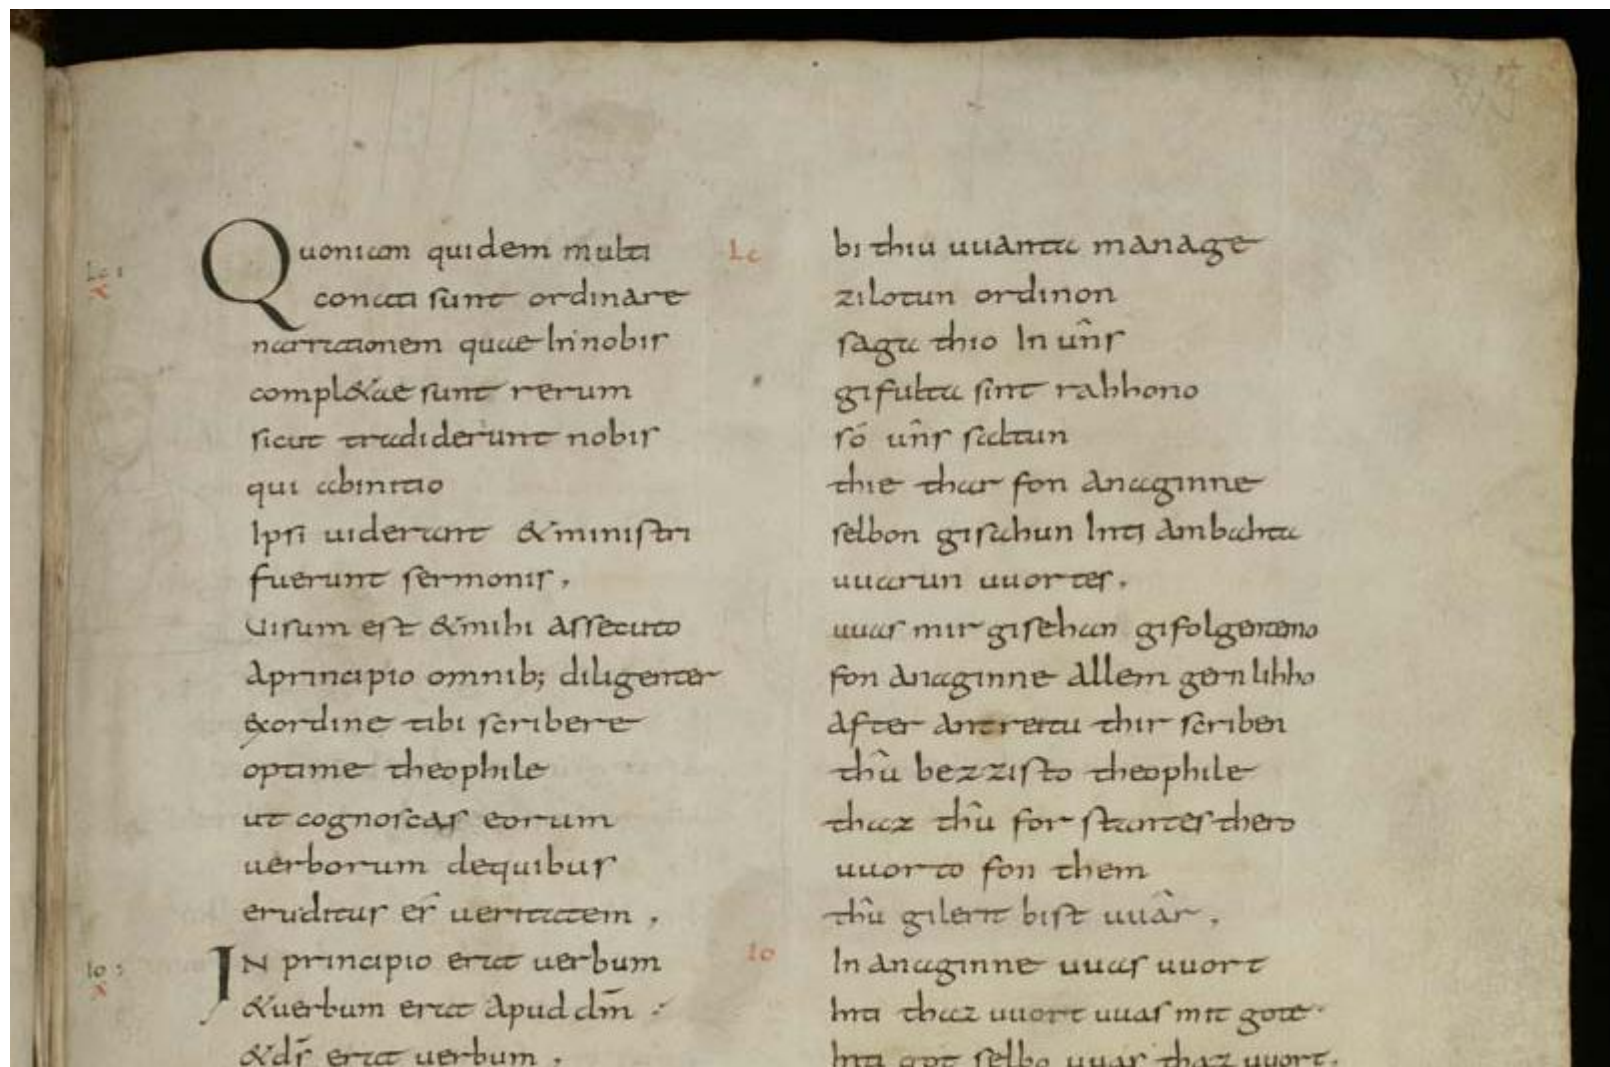 Quoniam quidem multi
conati sunt ordinare
narrationem quae In nobis
compl&ae sunt rerum
sicut tradiderunt nobis
qui abinitio
Ipsi uiderunt &ministri
fuerunt sermonis,
Uisum est &mihi assecuto
aprincipio omnib; diligenter
exordine tibi scribere
optime theophile
ut cognoscas eorum
uerborum dequibus
eruditus es̄ ueritatem,
IN principio erat uerbum
&uerbum erat apud dm̄
&ds̄ erat uerbum.
Lc
bi thiu uuanta manage
zilotun ordinon
saga thio In uńs
gifulta sint rahhono
só uńs saltun
thie thar fon anaginne
selbon gisahun Inti ambahta
uuarun uuortes.
uuas mir gisehan gifolgentemo
fon anaginne allem gernlihho
after antreitu thir scriben
thû bezzisto theophile
thaz thû forstantes thero
uuorto fon them
thû gilerit bist uuâr.
Io
In anaginne uuas uuort
Inti thaz uuort uuas mit gote
Inti got selbo uuas thaz uuort.
Lc 1
x
Io
x